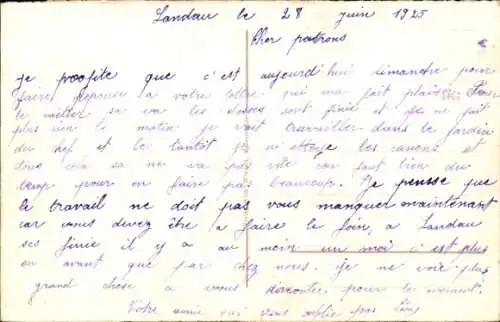 Landau le 28 juin 1925
Cher patrons
je proofite que c'est aujourd'hui dimanche pour
faire reponse a votre lettre qui ma fait plaisir Pour
le métier sa va les classes sont finie et je ne fait
plus rien le matin je vait travailler dans le jardin
du chef et le tantôt je nettoye les canons et
tous cela sa ne va pas vite car faut bien du
temp pour en faire pas beaucoup. Je pensse que
le travail ne doit pas vous manquer maintenant
car vous devez être a faire le foin, a Landau
ses finie il y a au moin un moi c'est plus
en avant que par chez nous. je ne voie plus
grand chose a vous raconter pour le moment.
Votre amie qui vous oublie pas